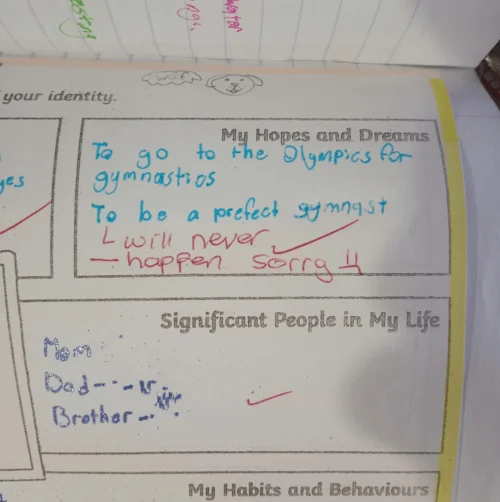 your identity.
woof
yes
My Hopes and Dreams
To go to the Olympics for
gymnastics
To be a prefect gymnast
will never
happen sorry
Significant People in My Life
Mom
Dad
Brother
My Habits and Behaviours